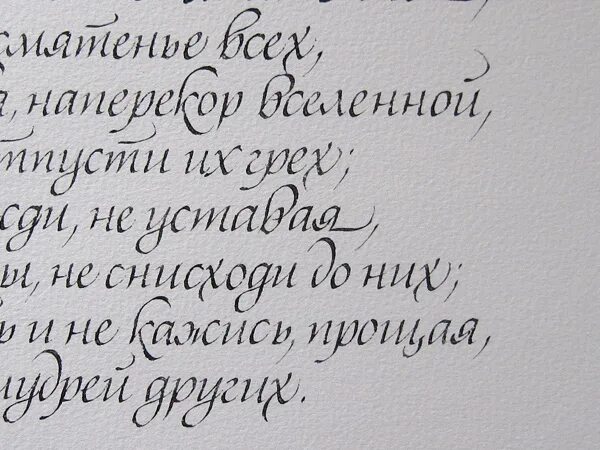 смятенье всех,
наперекор вселенной,
тпусти их грех;
не уставая,
ы, не снисходи до них;
ь и не кажись, прощая,
мудрей других.